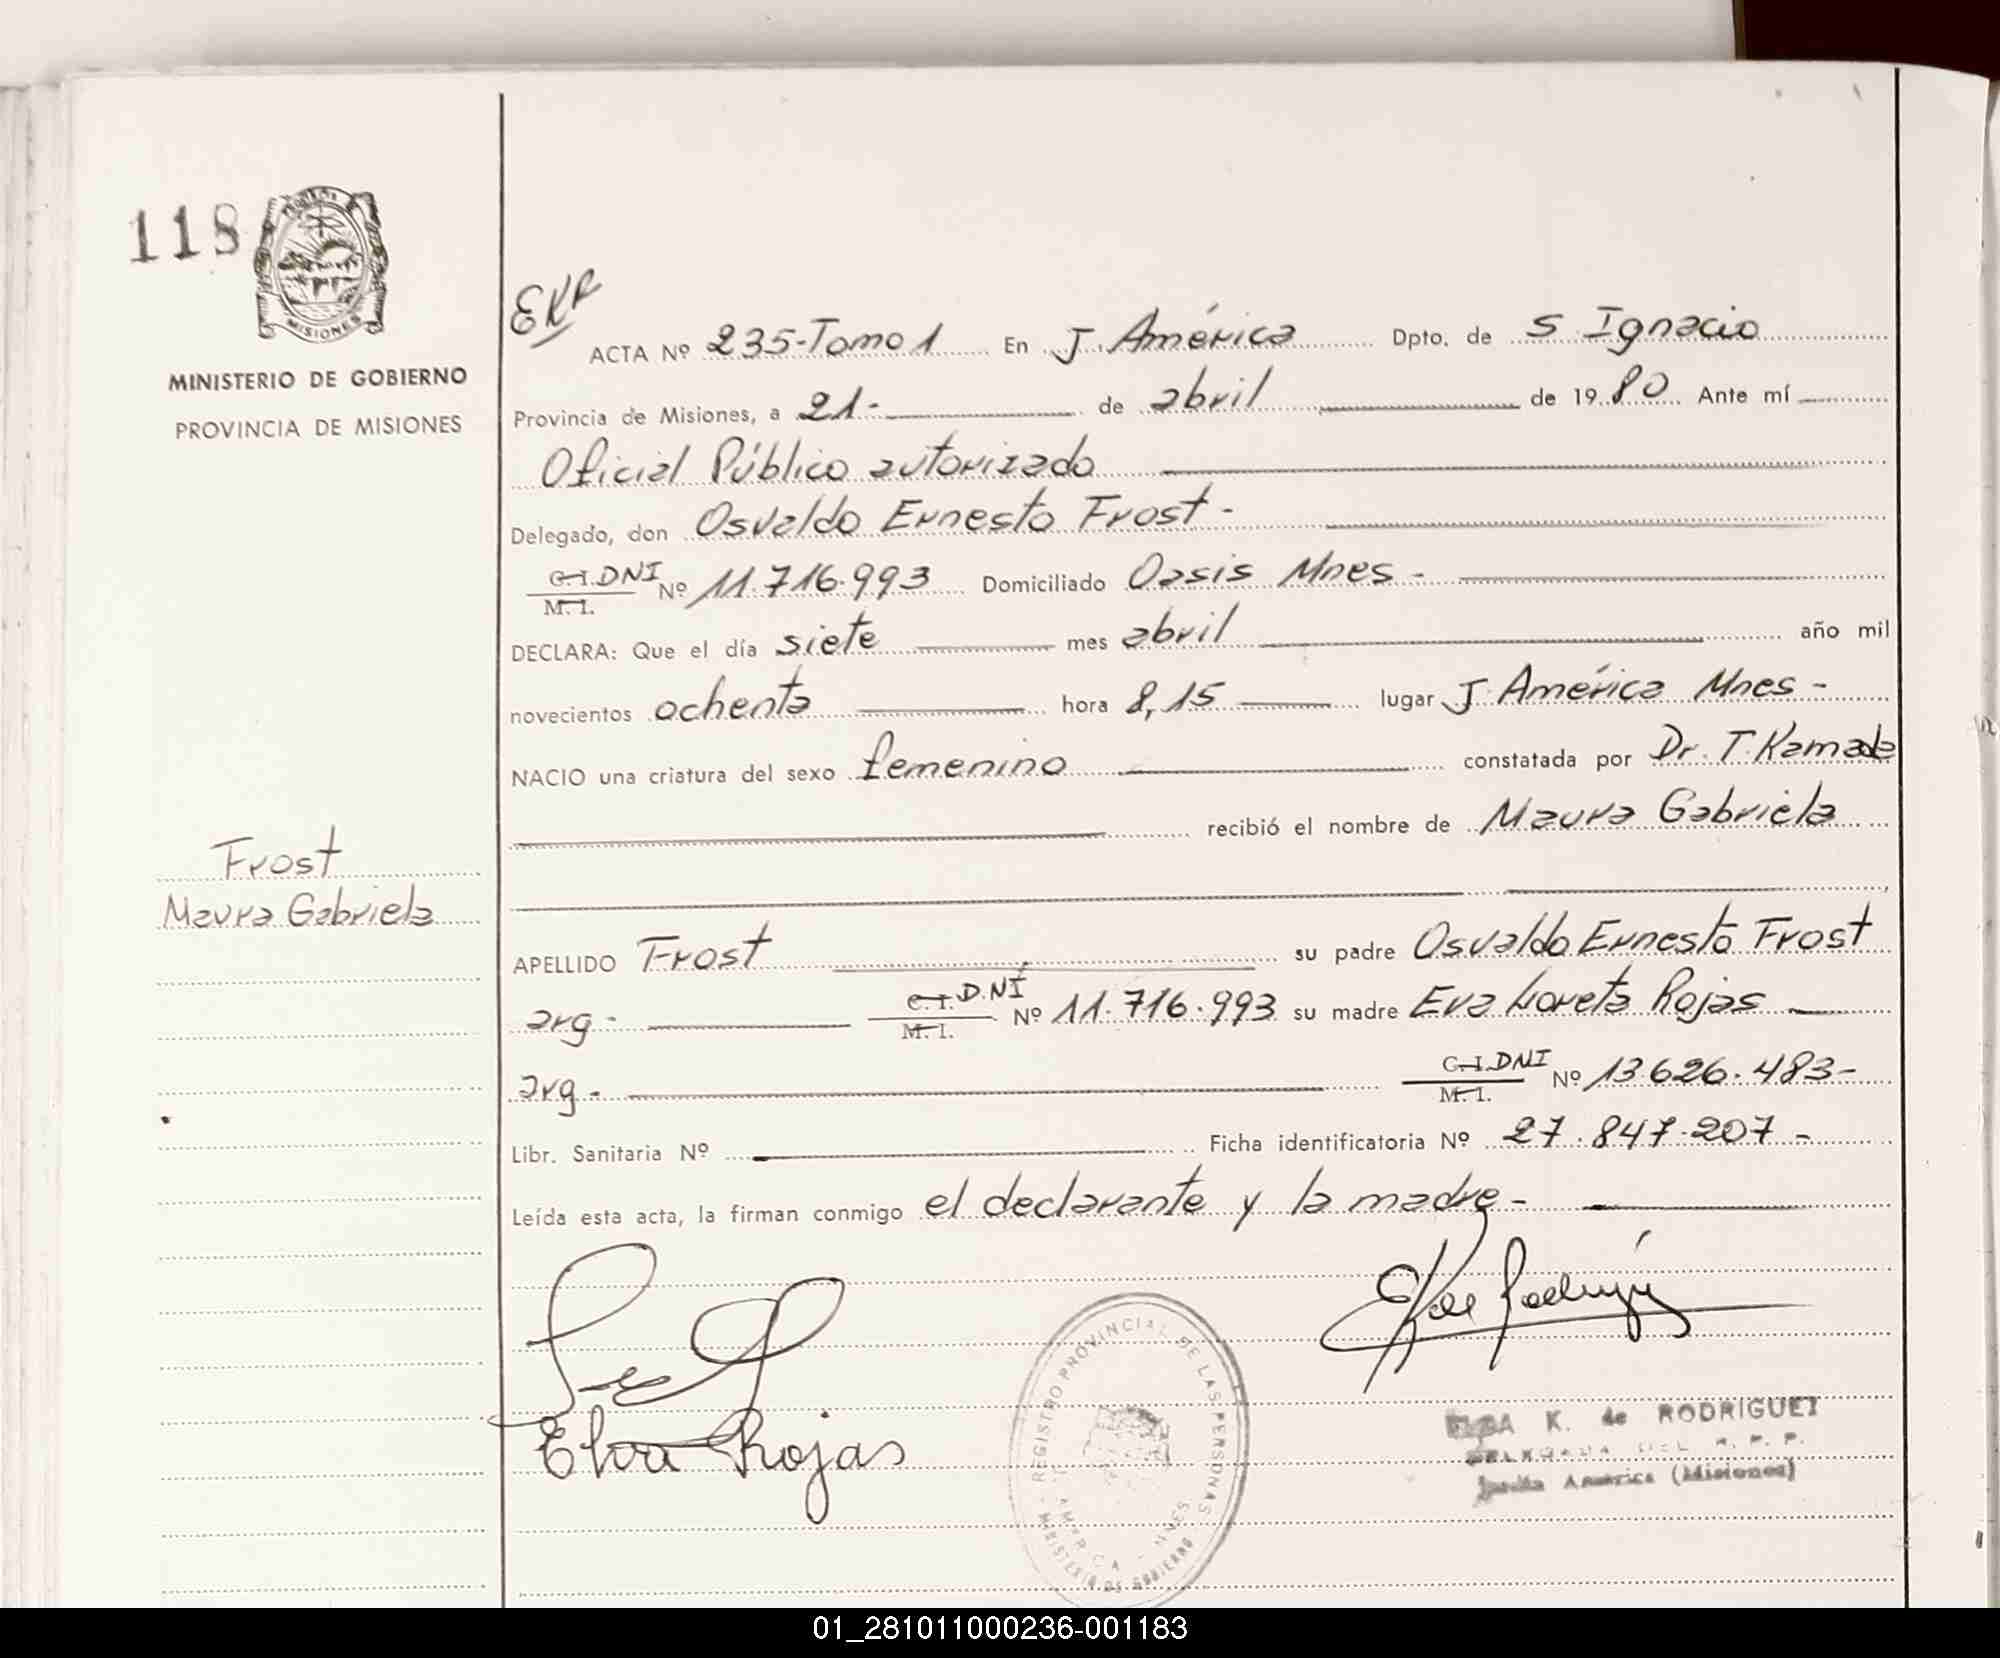 118
MISIONES
MINISTERIO DE GOBIERNO
PROVINCIA DE MISIONES
EKR
ACTA Nº 235-Tomo 1 En J. América Dpto. de S. Ignacio
Provincia de Misiones, a 21- de abril de 1980 Ante mí
Oficial Público autorizado
Delegado, don Osvaldo Ernesto Frost-
C.I. DNI
M. I.
Nº 11.716.993 Domiciliado Oasis Mnes-
DECLARA: Que el día siete mes abril año mil
novecientos ochenta hora 8,15 lugar J. América Mnes-
NACIO una criatura del sexo femenino constatada por Dr. T. Kamada
recibió el nombre de Maura Gabriela
Frost
Maura Gabriela
APELLIDO Frost su padre Osvaldo Ernesto Frost
arg- C.I. D.NI
M. I.
Nº 11.716.993 su madre Eva Loreta Rojas
arg- C.I. DNI
M. I.
Nº 13.626.483-
Libr. Sanitaria Nº Ficha identificatoria Nº 27.847.207-
Leída esta acta, la firman conmigo el declarante y la madre-
EK de Rodríguez
Elva Rojas
REGISTRO PROVINCIAL DE LAS PERSONAS
J. AMERICA - MNES.
MINISTERIO DE GOBIERNO
ELBA K. de RODRIGUEZ
DELEGADA DEL R. P. P.
Jardín América (Misiones)
01_281011000236-001183